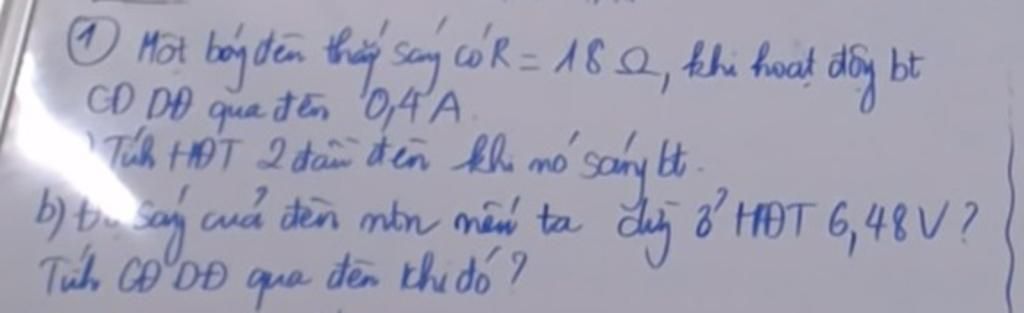 ① Một bóng đèn thắp sáng có R = 18 Ω, khi hoạt động bt
CĐ DĐ qua đèn 0,4A.
) Tính HĐT 2 đầu đèn khi nó sáng bt.
b) Độ sáng của đèn ntn nếu ta dùng ở HĐT 6,48V?
Tính CĐ DĐ qua đèn khi đó?